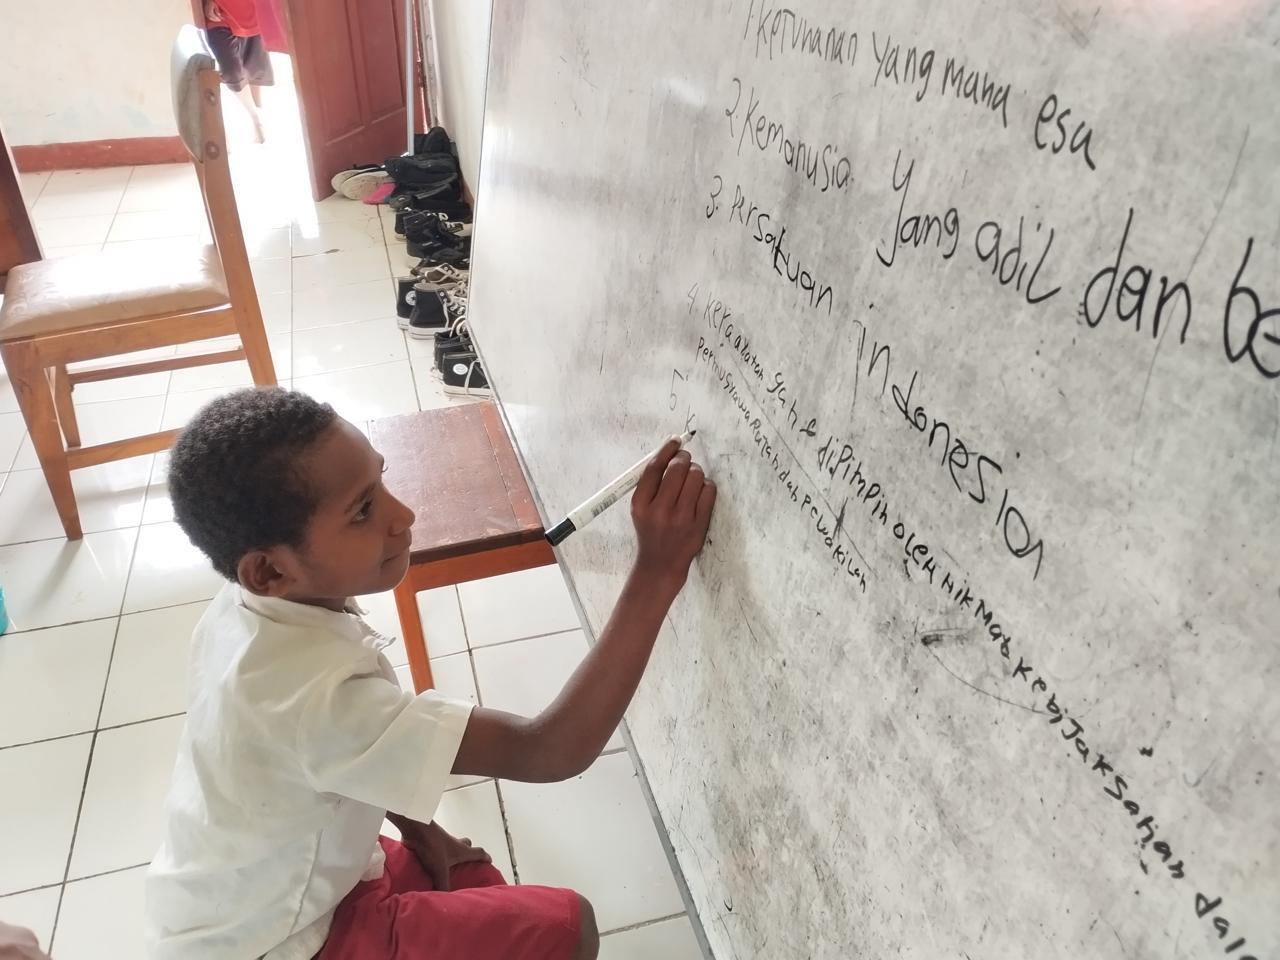 1. Ketuhanan yang maha esa
2. Kemanusia yang adil dan be
3. Persatuan indonesia
4. Kerakatan yan di Pimpin oleh Hikmat kebijaksanan dala
Permusyawaratan dan Pewakilan
5 K